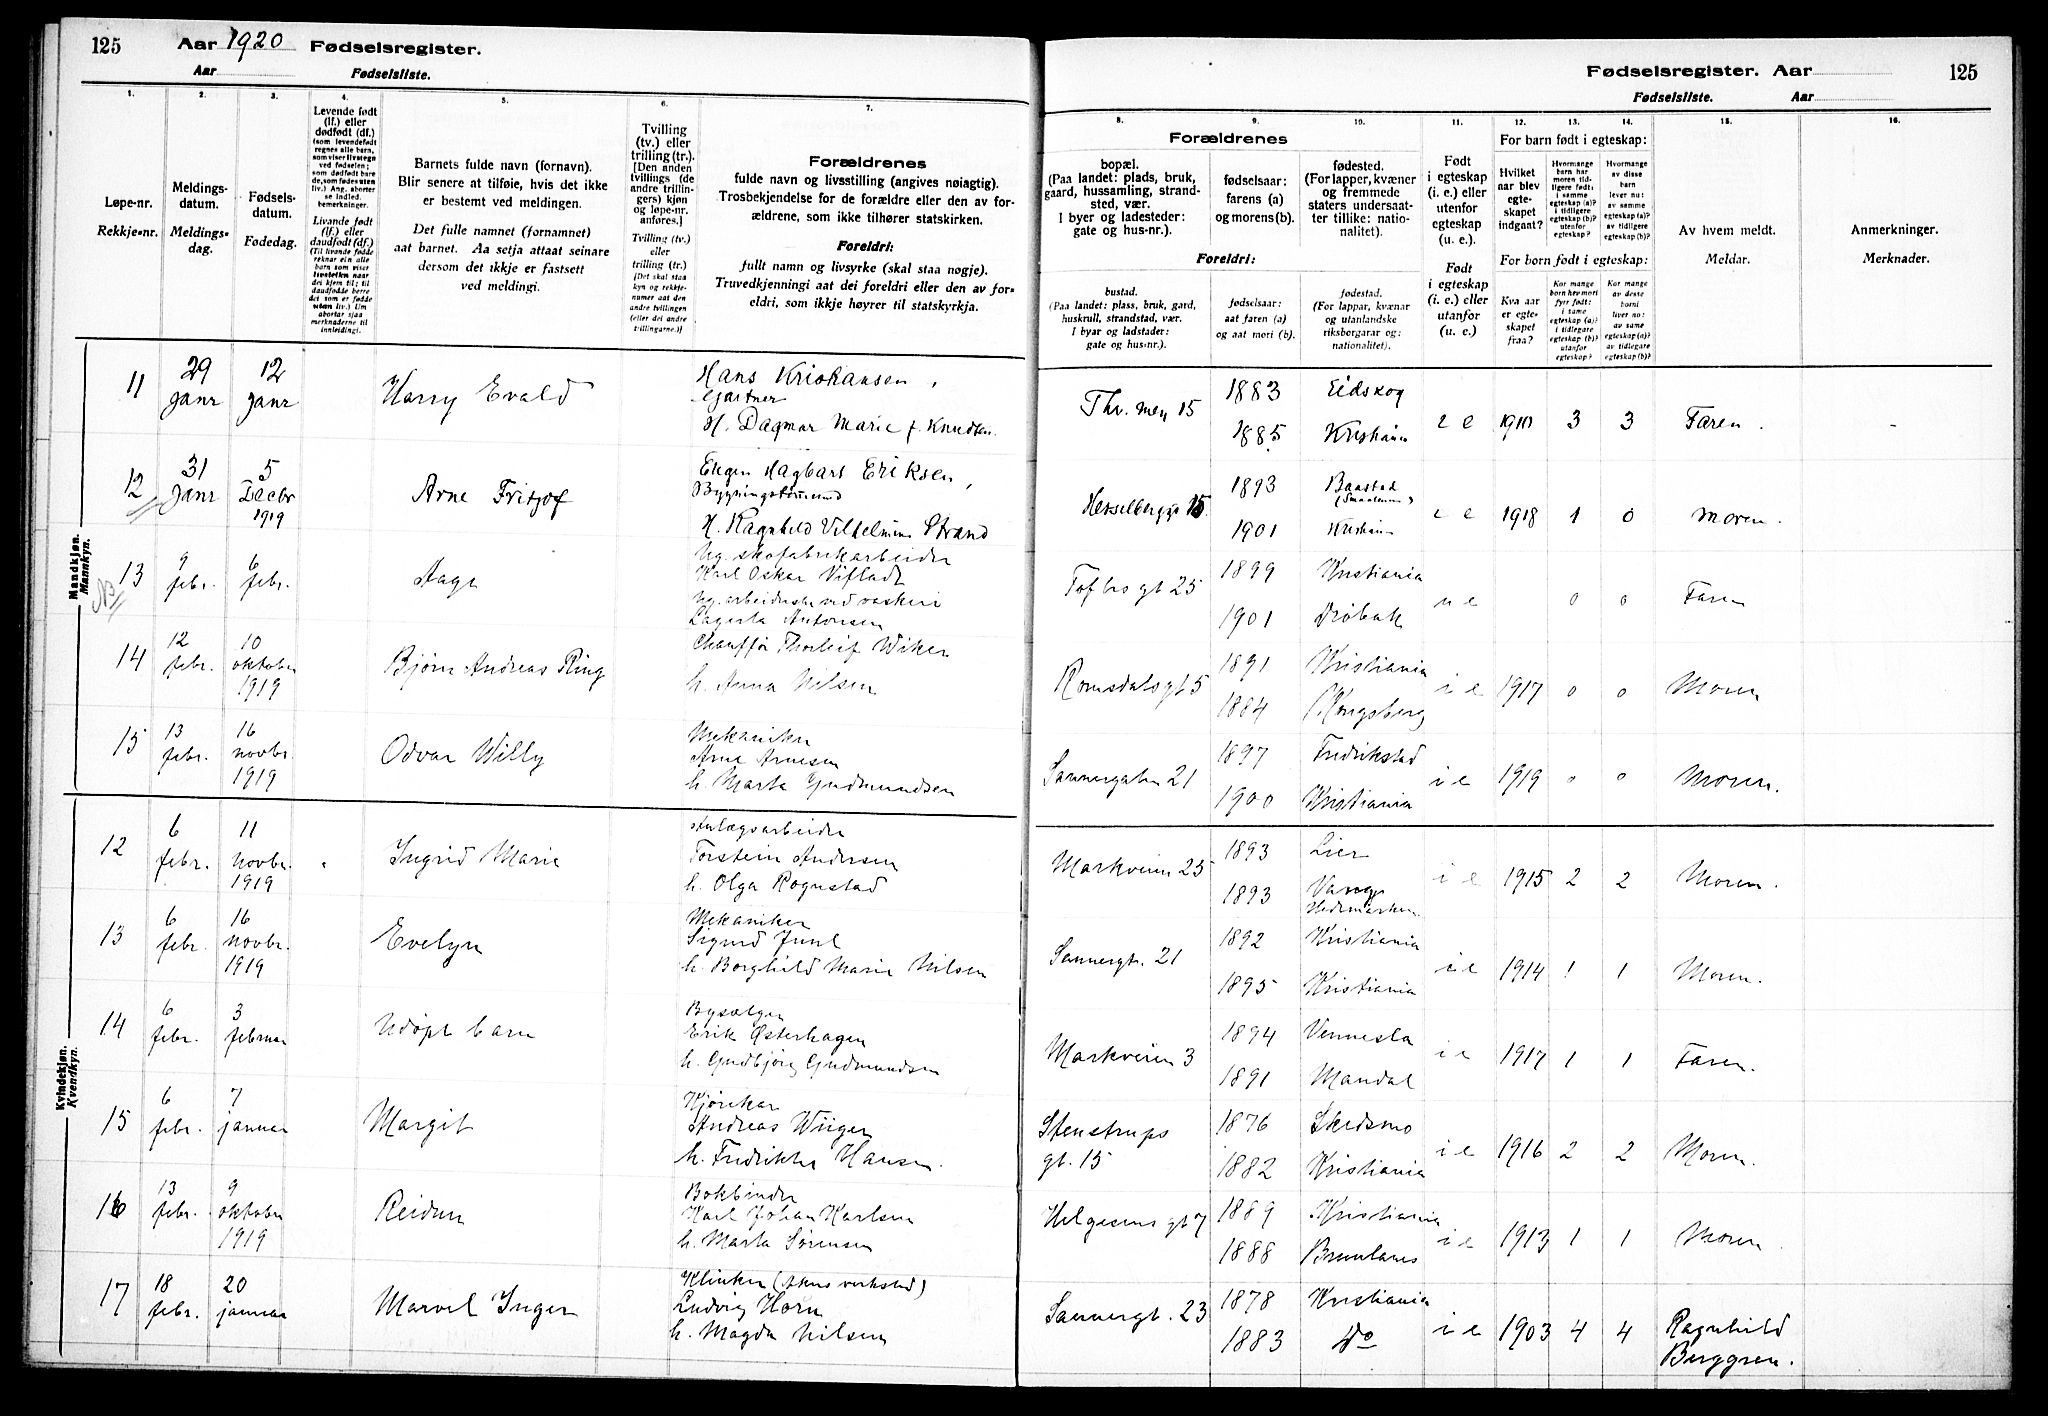 125 Aar 1920 Fødselsregister.
Aar Fødselsliste.
Fødselsregister. Aar 125
Fødselsliste. Aar
1. 2. 3. 4. 5. 6. 7.
8. 9. 10. 11. 12. 13. 14. 15. 16.
Løpe-nr.
Rekkje-nr.
Meldings-
datum.
Meldings-
dag.
Fødsels-
datum.
Fødedag.
Levende født
(lf.) eller
dødfødt (df.)
Livande født
(lf.) eller
daudfødt (df.)
Barnets fulde navn (fornavn).
Blir senere at tilføie, hvis det ikke
er bestemt ved meldingen.
Det fulle namnet (fornamnet)
aat barnet. Aa setja attaat seinare
dersom det ikkje er fastsett
ved meldingi.
Tvilling
(tv.) eller
trilling (tr.).
[Den anden
tvillings (de
andre trillin-
gers) kjøn
og løpe-nr.
anføres.]
Tvilling (tv.)
eller
trilling (tr.)
Forældrenes
fulde navn og livsstilling (angives nøiagtig).
Trosbekjendelse for de forældre eller den av for-
ældrene, som ikke tilhører statskirken.
Foreldri:
fullt namn og livsyrke (skal staa nøgje).
Truvedkjenningi aat dei foreldri eller den av for-
eldri, som ikkje høyrer til statskyrkja.
Forældrenes
bopæl.
(Paa landet: plads, bruk,
gaard, hussamling, strand-
sted, vær.
I byer og ladesteder:
gate og hus-nr.).
fødselsaar:
farens (a)
og morens (b).
fødested.
(For lapper, kvæner
og fremmede
staters undersaat-
ter tillike: natio-
nalitet).
Foreldri:
bustad.
(Paa landet: plass, bruk, gard,
huskrull, strandstad, vær.
I byar og ladstader:
gate og hus-nr.).
fødselsaar:
aat faren (a)
og aat mori (b).
fødestad.
(For lappar, kvænar
og utanlandske
riksborgarar og:
nationalitet).
Født
i egteskap
(i. e.) eller
utenfor
egteskap
(u. e.).
Født
i egteskap
(i. e.) eller
utanfor
(u. e.).
For barn født i egteskap:
Hvilket
aar blev
egte-
skapet
indgaat?
For born født i egteskap:
Kva aar
er egte-
skapet
fraa?
Av hvem meldt.
Meldar.
Anmerkninger.
Merknader.
Mandkjøn.
Mannkyn.
11 29 janr 12 janr Harry Evald
Hans Kriohansen,
Gartner
H. Dagmar Marie f. Knudsen.
Thv. mey 15 1883 Eidskog 1885 Kristiania i e 1910 3 3 Faren.
12 31 janr 5 Decbr 1919 Arne Fritjof
Eugen Hagbart Eriksen,
H. Ragnhild Vilhelmine Strand
Hesselberggt 15. 1893 Baastad (Smaalenene) 1901 Kristiania i e 1918 1 0 Moren.
13 9 febr. 6 febr. Aage
Ug. skofabrikarbeider
Karl Oskar Vifladt
Ug. arbeiderske ved vaskeri
Lagerta Antonsen
Toftes gt 25 1899 Kristiania 1901 Drøbak u e 0 0 Faren
14 12 febr. 10 oktober 1919 Bjørn Andreas Ring
Chauffør Thorleif Wiker
h. Anna Nilsen
Romsdalsgt 5 1891 Kristiania 1884 Kongsberg i e 1917 0 0 Moren
15 13 febr. 16 novbr. 1919 Odvar Willy
Mekaniker
Arne Arnesen
h. Marta Gudmundsen
Sannergaten 21 1897 Fredrikstad 1900 Kristiania i e 1919 0 0 Moren.
Kvindekjøn.
Kvendkyn.
12 6 febr. 11 novbr. 1919 Ingrid Marie
Anlægsarbeider
Torstein Andersen
h. Olga Rognstad
Markveien 25 1893 Lier 1893 Vang Hedemarken i e 1915 2 2 Moren.
13 6 febr. 16 novbr. 1919 Evelyn
Mekaniker
Sigurd Juul
h. Borghild Marie Nilsen
Sannergt. 21 1892 Kristiania 1895 Kristiania i e 1914 1 1 Moren.
14 6 febr. 3 februar Udøpt barn
Bysælger
Erik Østerhagen
h. Gudbjørg Gudmundsen
Markveien 3 1894 Vennesla 1891 Mandal i e 1917 1 1 Faren.
15 6 febr. 7 januar Margit
Kjørekar
Andreas Wiiger
h. Fredrikke Hansen.
Stenstrups gt. 15 1876 Skedsmo 1882 Kristiania i e 1916 2 2 Moren.
16 13 febr. 9 oktober 1919 Reidun
Bokbinder
Karl Johan Karlsen
h. Marta Sørensen
Helgesens gt 7 1889 Kristiania 1888 Brunlanes i e 1913 1 1 Moren.
17 18 febr. 20 januar Marvel Inger
Klinker (Akers verksted)
Ludvig Horn
h. Magda Nilsen
Sannergt. 23 1878 Kristiania 1883 Do i e 1903 4 4 Ragnhild Berggren.